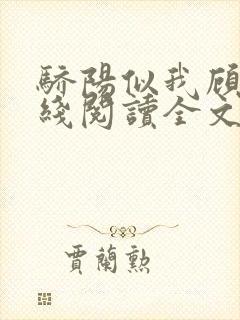 驕陽似我顧
綫閱讀全文
賈蘭勲